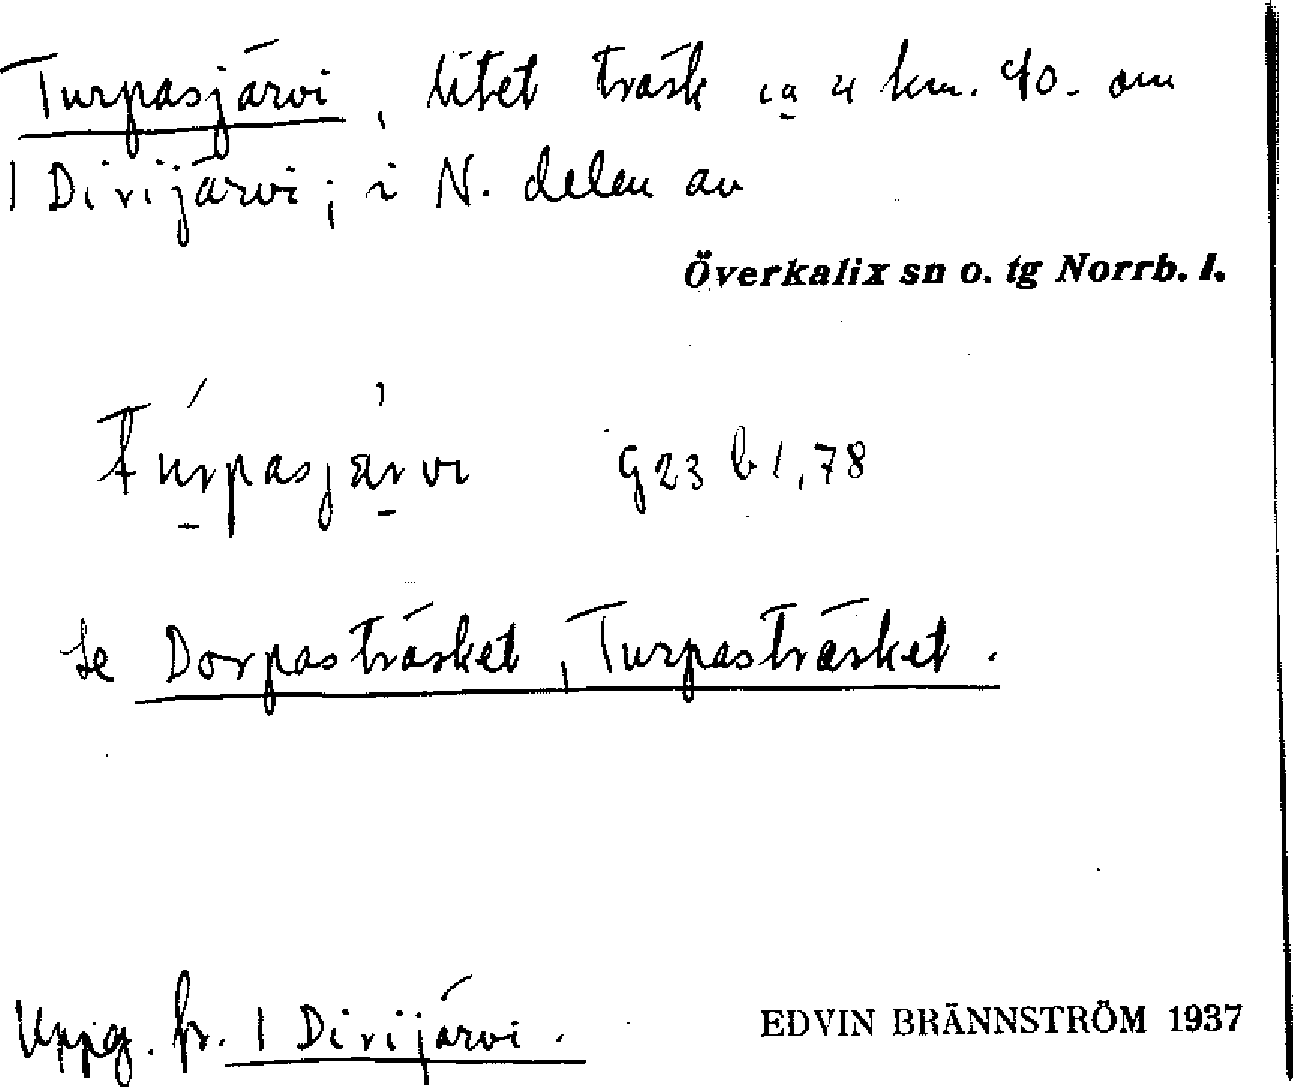 Turpasjärvi, litet träsk ca 4 km. NO. om
1 Dirijärvi; i N. delen av
Överkalix sn o. tg Norrb. l.
Túrpasjärvi G23 b 1,78
se Dorpasträsket, Turpasträsket.
Uppg. fr. 1 Dirijärvi.
EDVIN BRÄNNSTRÖM 1937